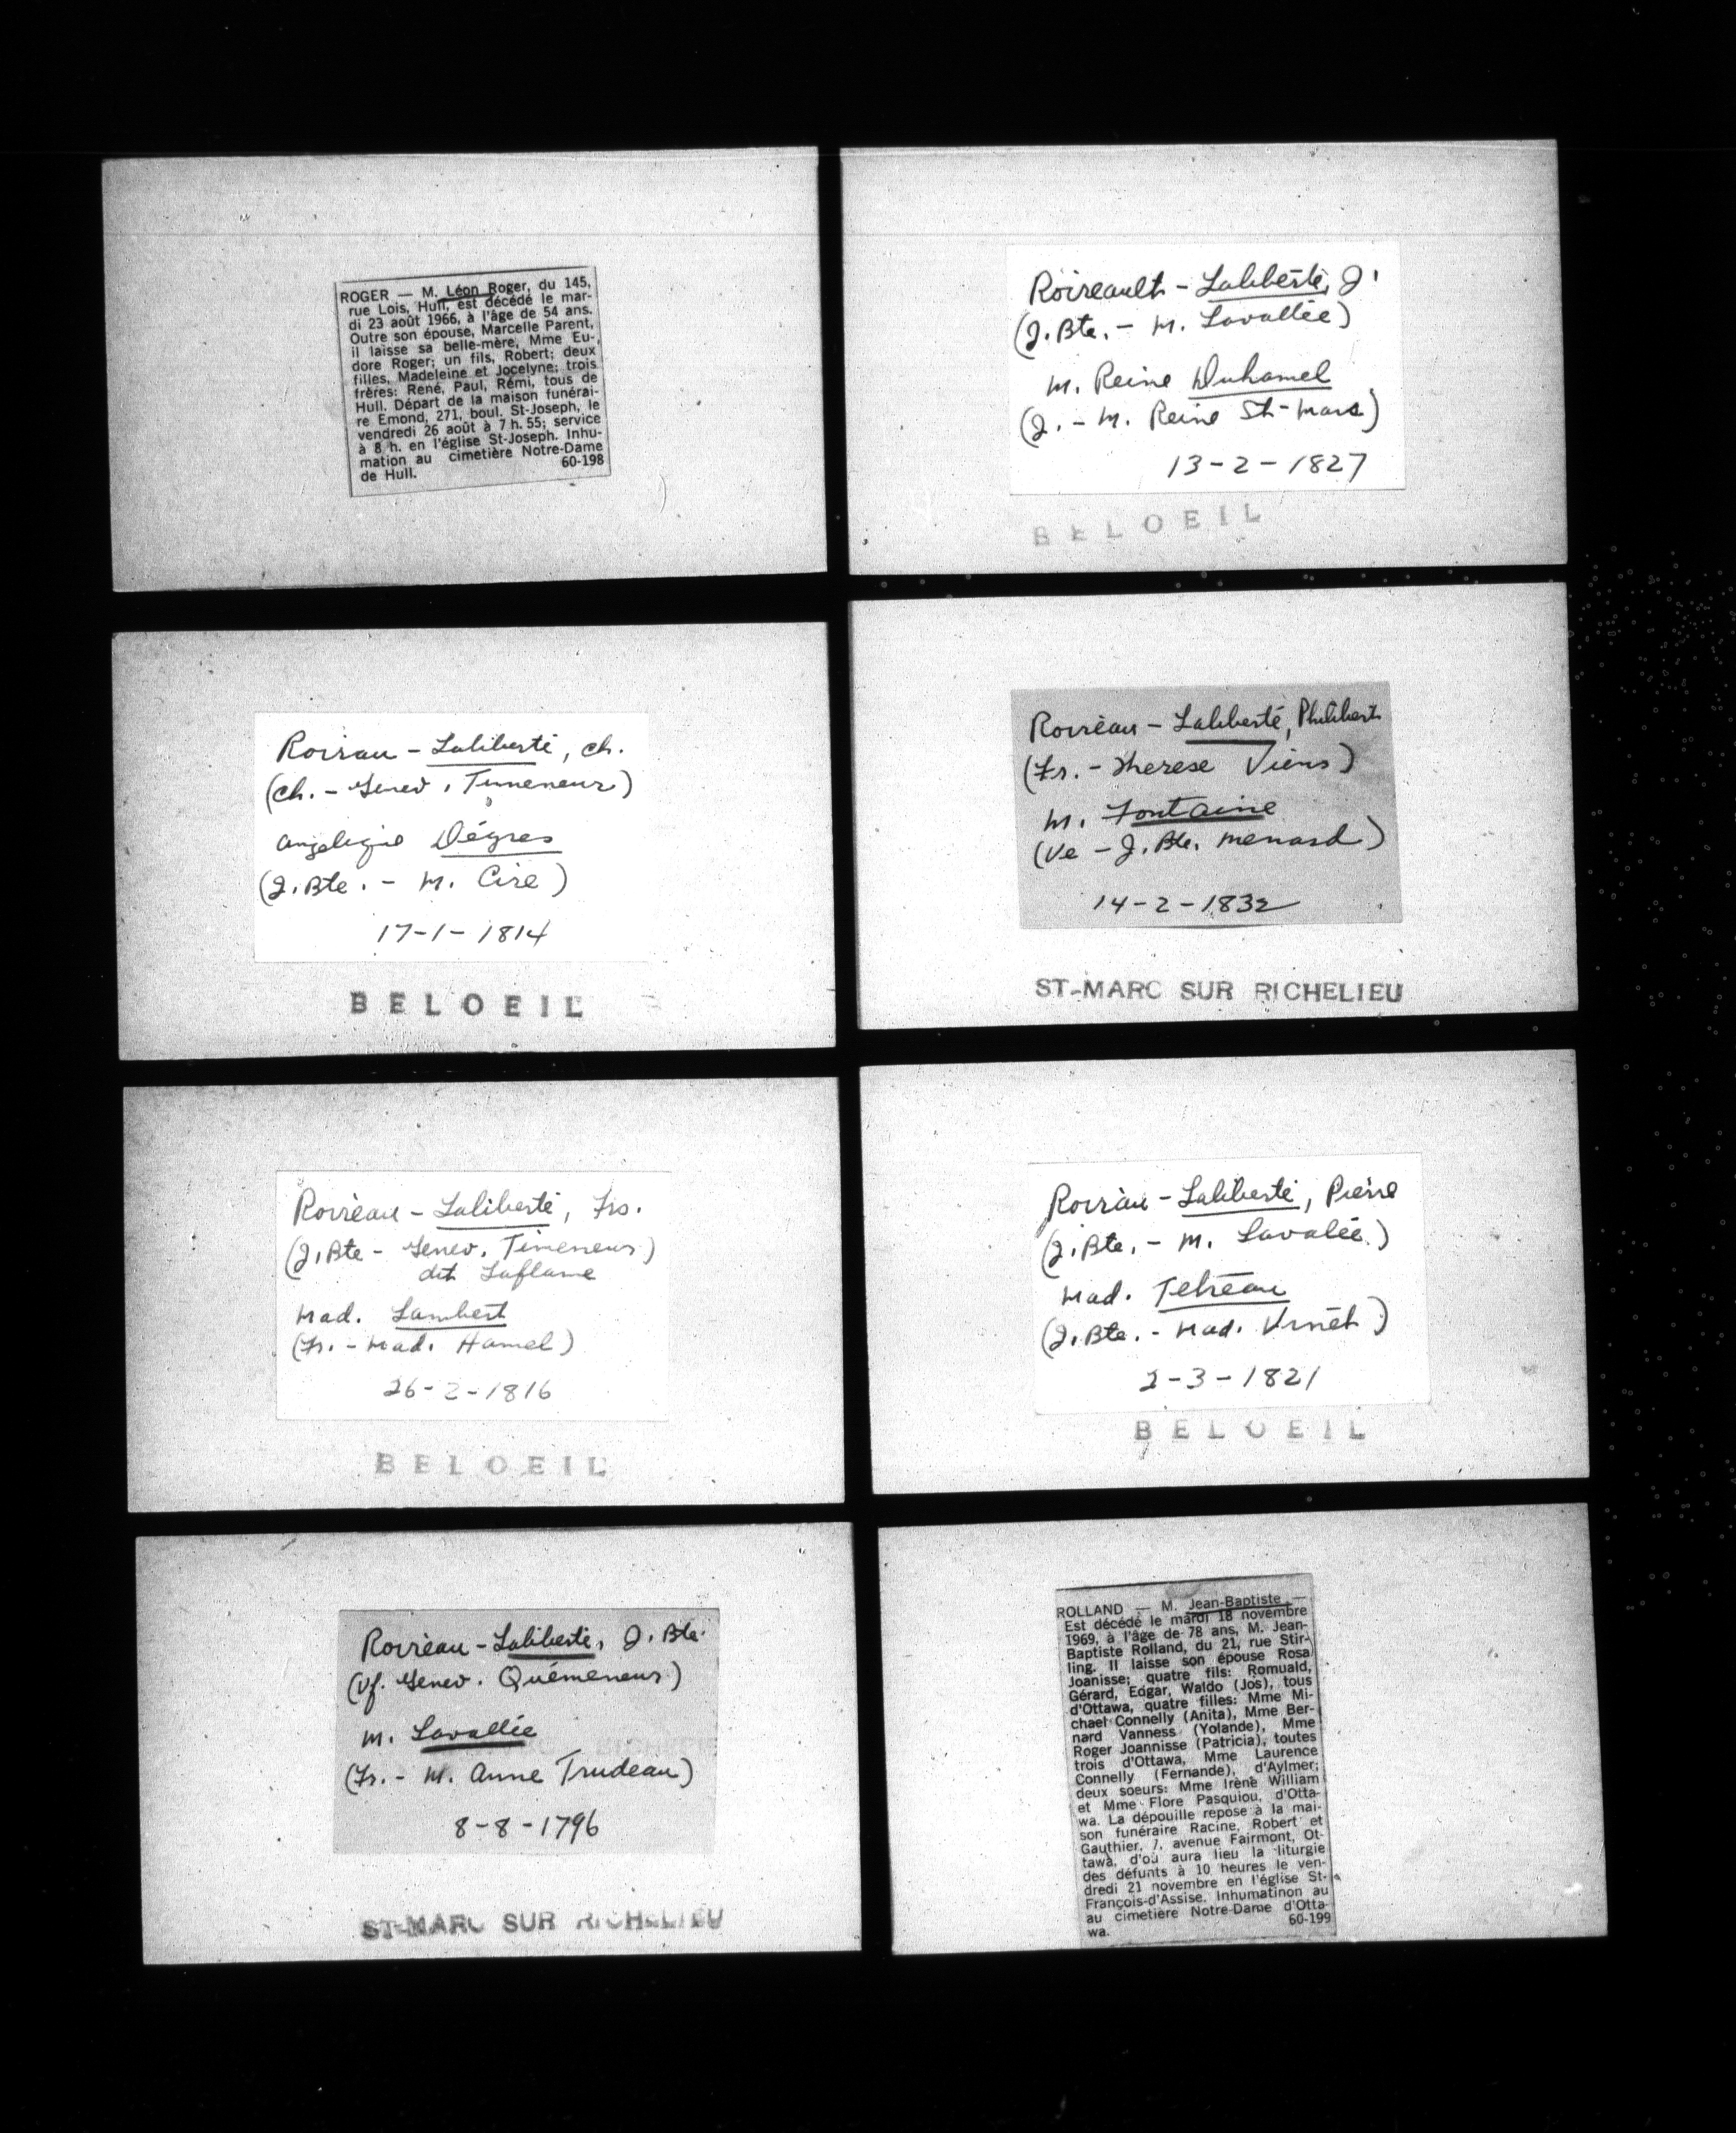 ROGER — M. Léon Roger, du 145,
rue Lois, Hull, est décédé le mar-
di 23 août 1966, à l'âge de 54 ans.
Outre son épouse, Marcelle Parent,
il laisse sa belle-mère, Mme Eu-
dore Roger; un fils, Robert; deux
filles, Madeleine et Jocelyne; trois
frères: René, Paul, Rémi, tous de
Hull. Départ de la maison funérai-
re Emond, 271, boul. St-Joseph, le
vendredi 26 août à 7 h. 55; service
à 8 h. en l'église St-Joseph. Inhu-
mation au cimetière Notre-Dame
de Hull. 60-198
Roireault - Laliberté, J.
(J. Bte. - M. Lavallée)
M. Reine Duhamel
(J. - M. Reine St-Mars)
13-2-1827
BELOEIL
Roirau - Laliberté, Ch.
(Ch. - Genev. Timeneur)
Angelique Dégres
(J. Bte. - M. Cire)
17-1-1814
BELOEIL
Roireau - Laliberté, Philibert
(Fr. - Therese Viens)
M. Fontaine
(Ve - J. Bte. Menard)
14-2-1832
ST-MARC SUR RICHELIEU
Roireau - Laliberté, Frs.
(J. Bte - Genev. Timeneur)
dit Laflame
Mad. Lambert
(Fr. - Mad. Hamel)
26-2-1816
BELOEIL
Roirau - Laliberté, Pierre
(J. Bte. - M. Lavalée)
Mad. Tetreau
(J. Bte. - Mad.
2-3-1821
BELOEIL
Roireau - Laliberté, J. Bte.
(Vf. Genev. Quémeneur)
M. Lavallée
(Fr. - M. Anne Trudeau)
8-8-1796
ST-MARC SUR RICHELIEU
ROLLAND — M. Jean-Baptiste —
Est décédé le mardi 18 novembre
1969, à l'âge de 78 ans, M. Jean-
Baptiste Rolland, du 21, rue Stir-
ling. Il laisse son épouse Rosa
Joanisse; quatre fils: Romuald,
Gérard, Edgar, Waldo (Jos), tous
d'Ottawa, quatre filles: Mme Mi-
chael Connelly (Anita), Mme Ber-
nard Vanness (Yolande), Mme
Roger Joannisse (Patricia), toutes
trois d'Ottawa, Mme Laurence
Connelly (Fernande), d'Aylmer;
deux soeurs: Mme Irène William
et Mme Flore Pasquiou, d'Otta-
wa. La dépouille repose à la mai-
son funéraire Racine, Robert et
Gauthier, 7, avenue Fairmont, Ot-
tawa, d'où aura lieu la liturgie
des défunts à 10 heures le ven-
dredi 21 novembre en l'église St-
François-d'Assise. Inhumatinon au
au cimetière Notre-Dame d'Otta-
wa. 60-199